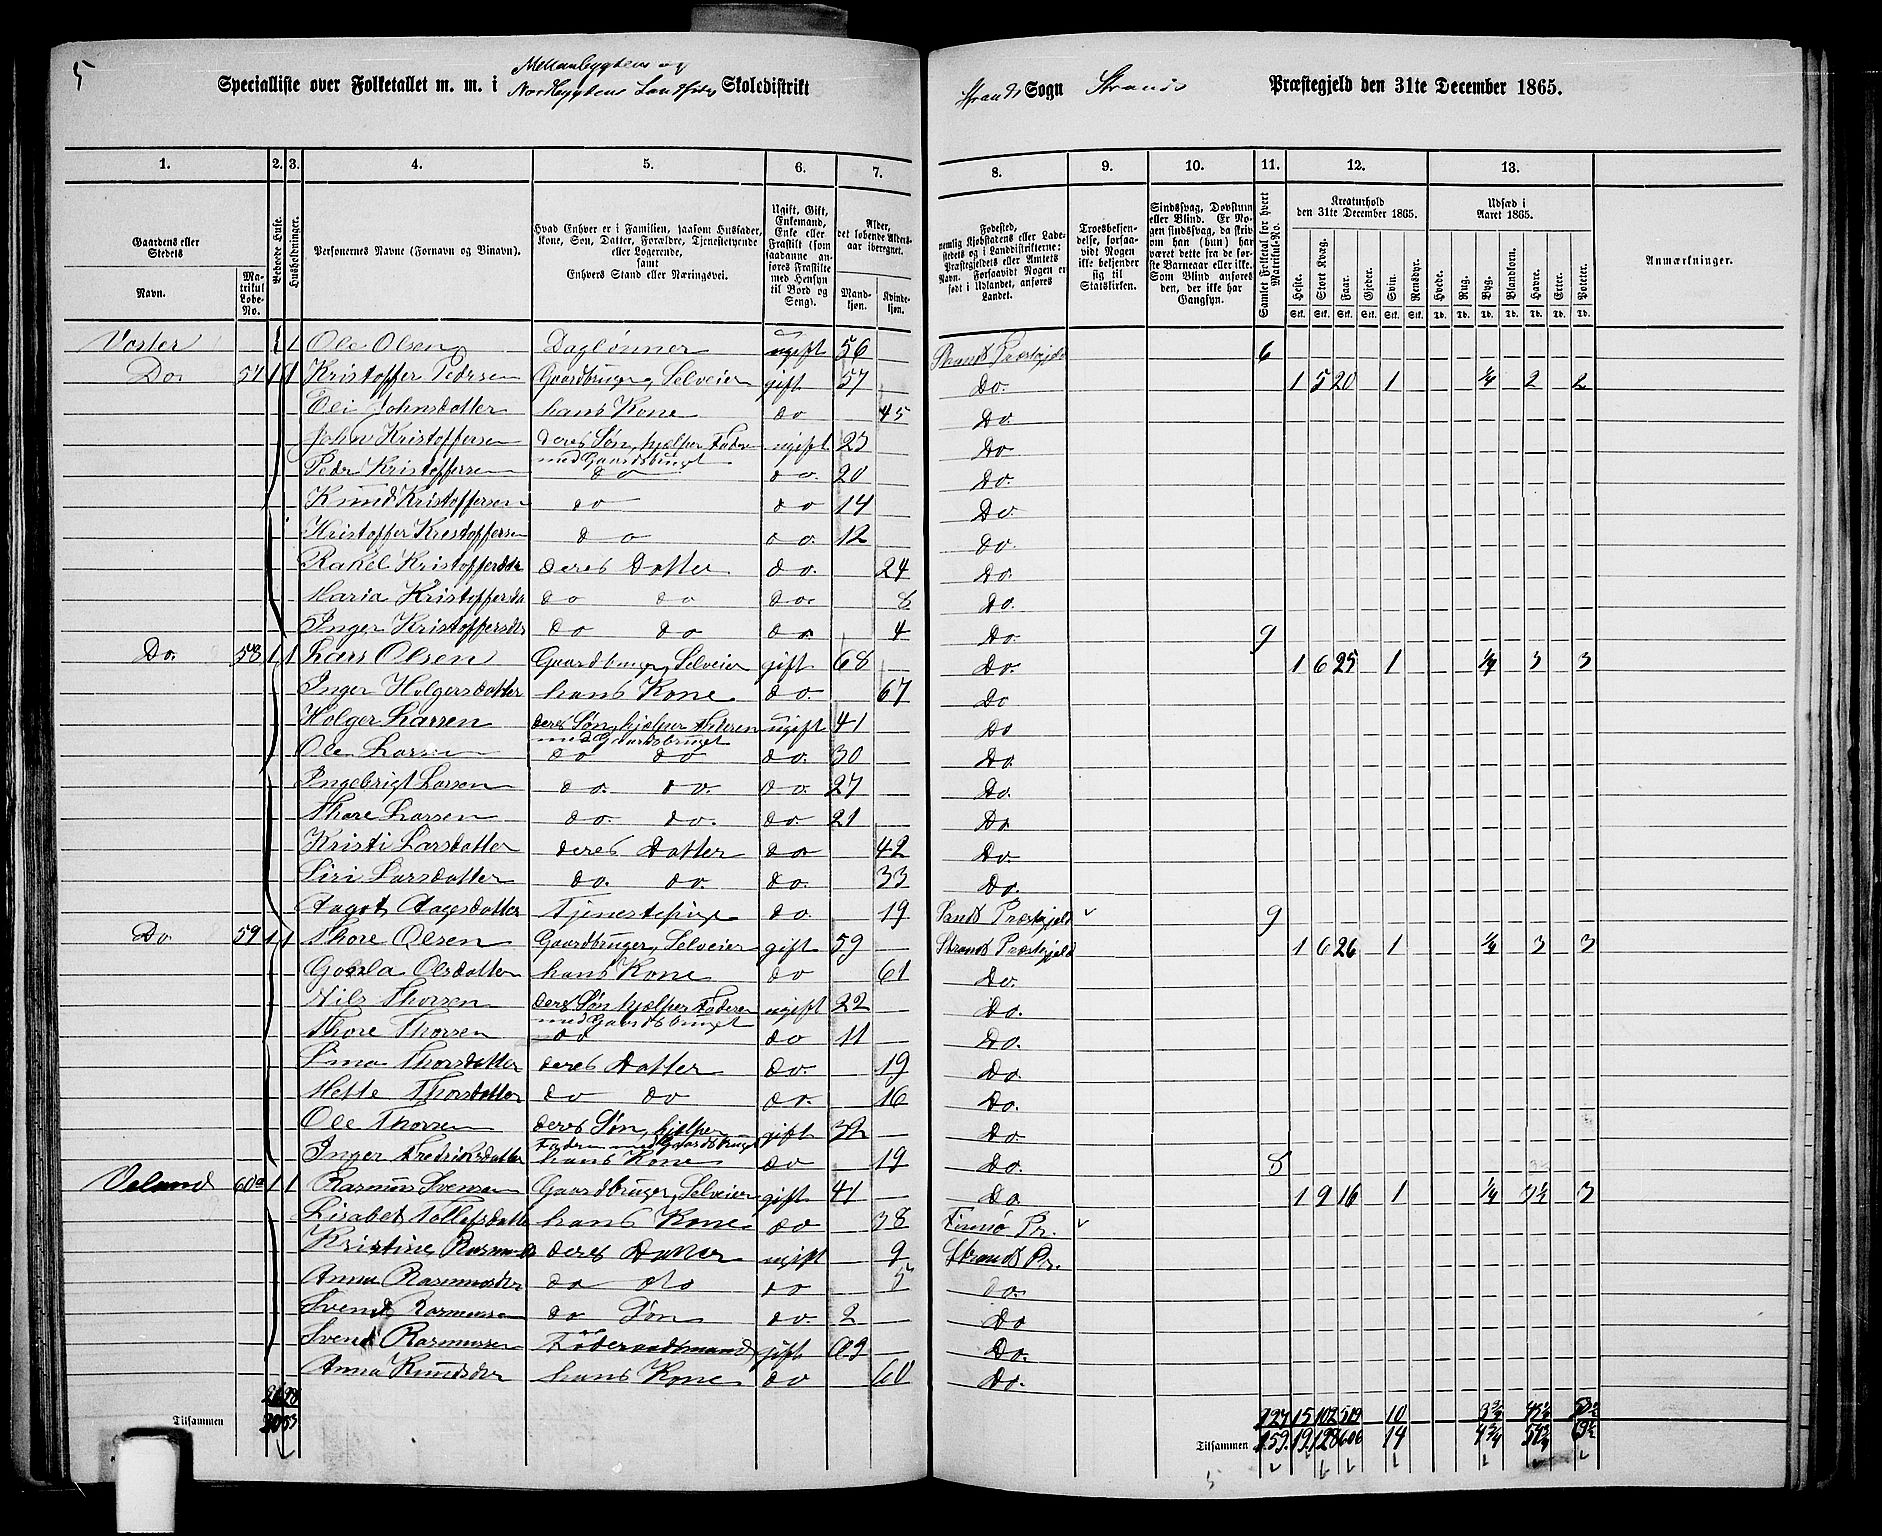 5
Specialliste over Folketallet m. m. i Mellanbygdens og Nordbygdens Landfolks Skoledistrikt
Strands Sogn Strands Præstegjeld den 31te December 1865.
1. 2. 3. 4. 5. 6. 7. 8. 9. 10. 11. 12. 13.
Gaardens eller Stedets Navn. Matrikul Løbe-No. Bebodde Huse. Husholdninger.
Personernes Navne (Fornavn og Tilnavn).
Hvad Enhver er i Familien, saasom Husfader, Kone, Søn, Datter, Forældre, Tjenestetyende eller Logerende, samt Enhvers Stand eller Næringsvei.
Ugift, Gift, Enkemand, Enke eller Fraskilt (som saadanne anføres Fraskilte med Hensyn til Bord og Seng).
Alder, det løbende Aldersaar iberegnet. Mandkjøn. Kvindekjøn.
Fødested, nemlig Kjøbstadens eller Ladestedets og i Landdistrikterne: Præstegjeldets eller Amtets Navn. Forsaavidt Nogen er født i Udlandet, anføres Landet.
Troesbekjendelse, forsaavidt Nogen ikke bekjender sig til Statskirken.
Sindssvag, Døvstum eller Blind. Er Nogen sindssvag, da skriv om han (hun) har været dette fra de første Barneaar eller ikke. Som Blind anføres den, der ikke har Gangsyn.
Samlet Folketal for hvert Matrikul-No.
Kreaturhold den 31te December 1865. Heste. Stort Kvæg. Faar. Gjeder. Svin. Rensdyr.
Udsæd i Aaret 1865. Hvede. Rug. Byg. Blandkorn. Havre. Erter. Poteter.
Anmærkninger.
Voster 1 Ole Olsen Daglønner ugift 56 Strands Præstegjeld 6
Do. 57 1 1 Kristoffer Pedersen Gaardbruger, Selveier gift 57 Do. 1 5 20 1 1/4 2 2
Eli Johnsdatter hans Kone do 45 Do.
John Kristoffersen deres Søn, hjælper Faderen med Gaardsbruget ugift 23 Do
Peder Kristoffersen do do. 20 Do.
Knud Kristoffersen do do 14 Do
Kristoffer Kristoffersen do do. 12 Do.
Rakel Kristoffersdtr deres Datter do. 24 Do.
Maria Kristoffersda do do do. 8 Do.
Inger Kristoffersdtr do do do. 4 Do. 9
Do. 58 1 1 Lars Olsen Gaardbruger, Selveier gift 68 Do. 1 6 25 1 1/4 3 3
Inger Holgersdatter hans Kone do. 67 Do
Holger Larsen deres Søn, hjælper Faderen med Gaardsbruget ugift 41 Do
Ole Larsen do do do. 30 Do.
Ingebrigt Larsen do. do. do. 27 Do.
Thore Larsen do. do. do. 21 Do
Kristi Larsdatter deres Datter do 42 Do.
Siri Larsdatter do. do. do. 33 Do.
Aagot Aagesdatter Tjenestepige do. 19 Sands Præstegjeld 9
Do 59 1 1 Thore Olsen Gaardbruger, Selveier gift 59 Strands Præstegjeld 1 6 26 1 1/4 3 3
Gurla Olsdatter hans Kone do 61 Do.
Nils Thorsen deres Søn hjælper Faderen med Gaardsbruget ugift 22 Do.
Thore Thorsen do do 11 Do.
Thorsdatter deres Datter do. 19 Do.
Mette Thorsdatter do do do. 16 Do.
Ole Thorsen deres Søn, hjelper Faderen med Gaardsbruget gift 32 Do
Inger Fredriksdatter hans Kone do 19 Do. 8
Veland 60a 1 1 Rasmus Svensen Gaardbruger, Selveier gift 41 Do 1 9 16 1 1/4 3 1/2 3
Lisabet Tollefsdatter hans Kone do 38 Finnø Pr.
Kristine Rasmusd deres Datter ugift 9 Strands Pr.
Anna Rasmusdtr do do do 5 do.
Svend Rasmussen do Søn do. 2 Do
Svend Rasmussen Føderaadsmand gift 63 Do.
Anna Knudsdtr hans Kone do 60 Do.
127 15 102 519 10
Tilsammen Tilsammen 159. 19. 128 606 14
5